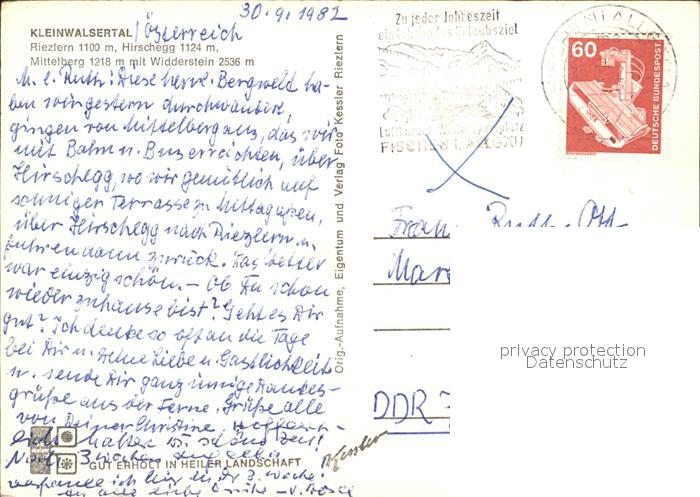 30.9.1982
KLEINWALSERTAL / Österreich
Riezlern 1100 m, Hirschegg 1124 m,
Mittelberg 1218 m mit Widderstein 2536 m
M. l. Ruth! Diese herrl. Bergwelt ha-
ben wir gestern durchwandert,
gingen von Mittelberg aus, das wir
mit Bahn u. Bus erreichten, über
Hirschegg, wo wir gemütlich auf
sonniger Terrasse zu Mittag aßen,
über Hirschegg nach Riezlern u.
fuhren dann zurück. Das Wetter
war einzig schön. – Ob Du schon
wieder zuhause bist? Geht es Dir
gut? Ich denke so oft an die Tage
bei Dir u. Deine Liebe u. Gastlichkeit
u. sende Dir ganz innige Dankes-
grüße aus der Ferne. Grüße alle
von Deiner Christine,
schöne Zeit!
Noch 3 Wochen
GUT ERHOLT IN HEILER LANDSCHAFT
alle liebe
Orig.-Aufnahme, Eigentum und Verlag Foto Kessler Riezlern
Kessler
Zu jeder Jahreszeit
ein lohnendes Urlaubsziel
Luftkurort Wintersportplatz
FISCHEN I. ALLGÄU
60
DEUTSCHE BUNDESPOST
Frau Ruth Ott
DDR
privacy protection
Datenschutz